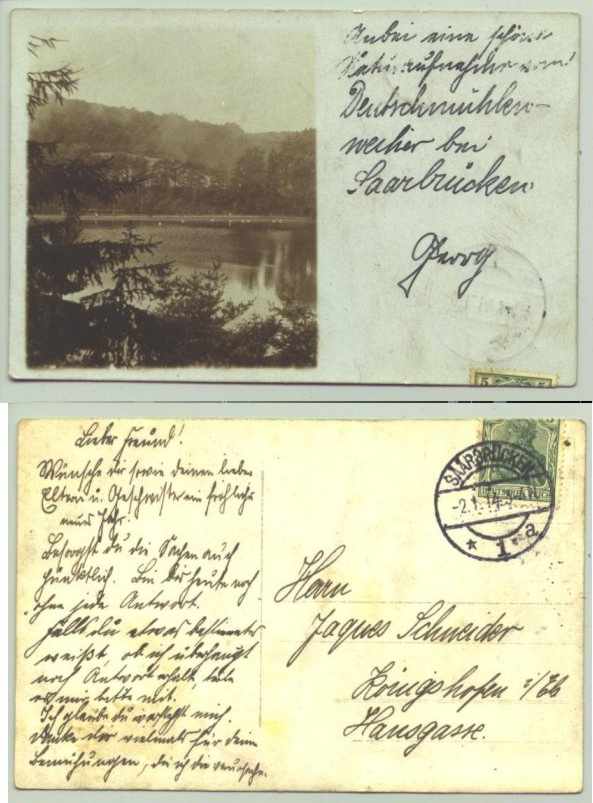 Anbei eine schöne
Naturaufnahme vom
Deutschmühlen-
weiher bei
Saarbrücken
Georg
5 5
Lieber Freund!
Wünsche dir sowie deinen lieben
Eltern u. Geschwister ein fröhliches
neues Jahr.
Besorgst du die Sachen auch
pünktlich. Bin bis heute noch
ohne jede Antwort.
Falls du etwas bestimmtes
weißt, ob ich überhaupt
noch Antwort erhalt, teile
es mir bitte mit.
Ich glaube du verstehst mich.
Danke dir vielmals für deine
Bemühungen, die ich dir verursache.
SAARBRÜCKEN
-2.1.14.
* 1 a
Herrn
Jaques Schneider
Königshofen i/Els
Hansgasse.